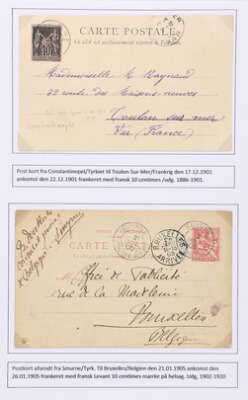 CARTE POSTALE
Ce côté est exclusivement réservé à l'adresse
Mademoiselle M. Raynaud
22 route des Maisons neuves
Toulon sur mer
Var (France)
Post kort fra Constantinopel/Tyrkiet til Toulon-Sur-Mer/Frankrig den 17.12.1901
ankomst den 22.12.1901 frankeret med fransk 10 centimes /udg. 1886-1901.
CARTE POSTALE
Ce côté est exclusivement réservé à l'adresse
BRUXELLES
ARRIVEE
Smyrne
Office de Publicité
rue de la Madeleine
Bruxelles
Belgique
Postkort afsendt fra Smurne/Tyrk. Til Bruxelles/Belgien den 21.01.1905 ankomst den
26.01.1905 frankeret med fransk Levant 10 centimes mærke på helsag. Udg, 1902-1920